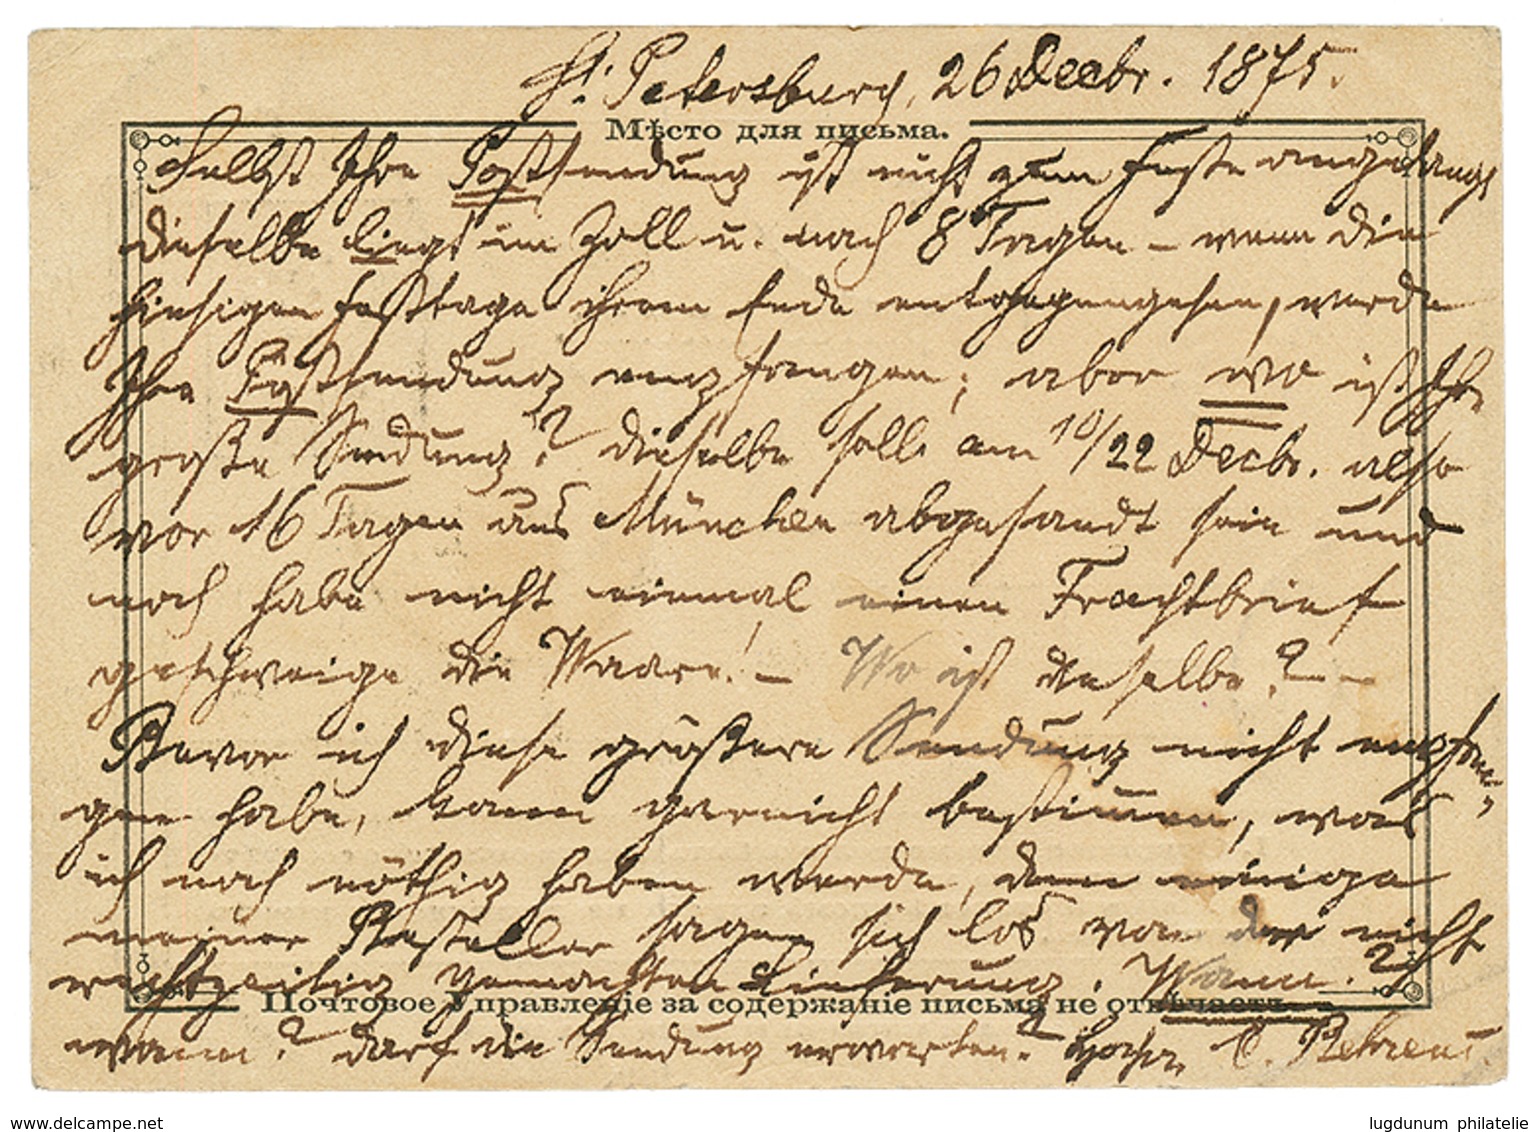 St. Petersburg, 26 Decbr. 1875.
Мѣсто для письма.
Selbst Ihre Postsendung ist nicht zum Feste angelangt
dieselbe liegt im Zoll u. nach 8 Tagen – wenn die
hiesigen Festtage ihrem Ende entgegengehen, werde
Ihre Postsendung empfangen; aber wo ist Ihre
große Sendung? dieselbe soll am 10/22 Decbr. also
vor 16 Tagen aus München abgesandt sein und
noch habe nicht einmal einen Frachtbrief
geschweige die Waare! – Wo ist dieselbe? –
Bevor ich diese größere Sendung nicht empfan-
gen habe, kann garnicht bestimmen, was
ich noch nöthig haben werde, denn einige
meiner Besteller sagen sich los von der nicht
rechtzeitig gemachten Lieferung. Wann?
Почтовое Управленіе за содержаніе письма не отвѣчаетъ.
wann? darf die Sendung erwarten? C. Behrens
delcampe.net
lugdunum philatelie